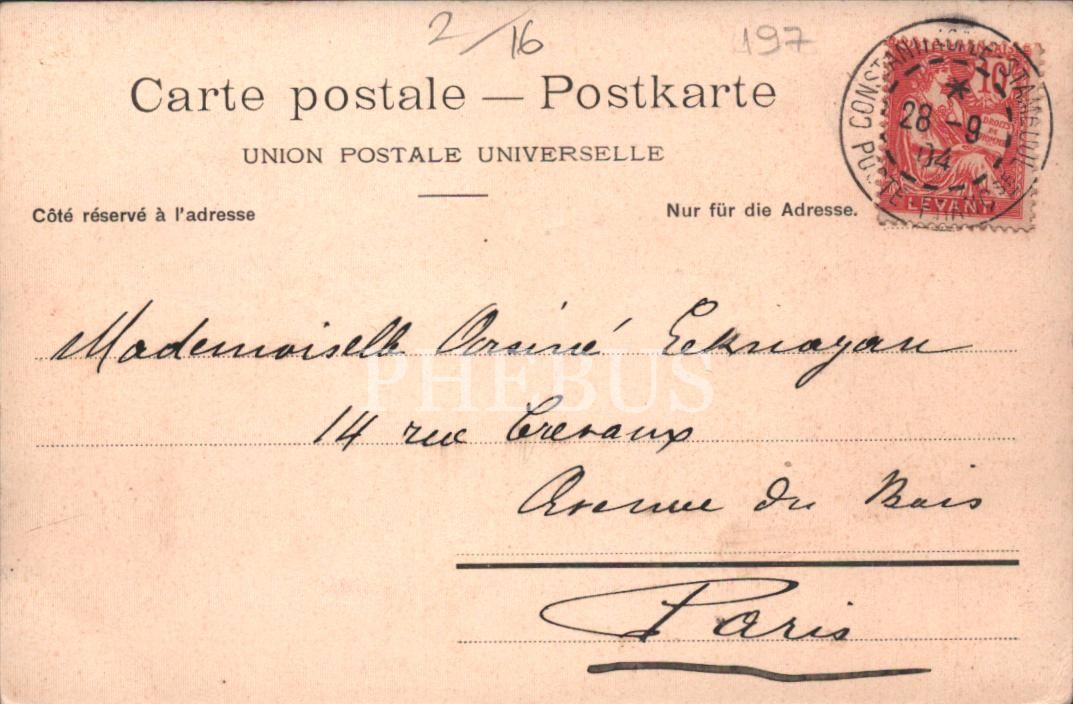 2/16
197
Carte postale — Postkarte
UNION POSTALE UNIVERSELLE
Côté réservé à l'adresse
Nur für die Adresse.
CONSTANTINOPLE STAMBOUL
POSTE FRANÇAISE
28 -9
04
10
DROITS DE L'HOMME
LEVANT
Mademoiselle Arsiné Eeknayan
PHEBUS
14 rue Crevaux
Avenue du Bois
Paris